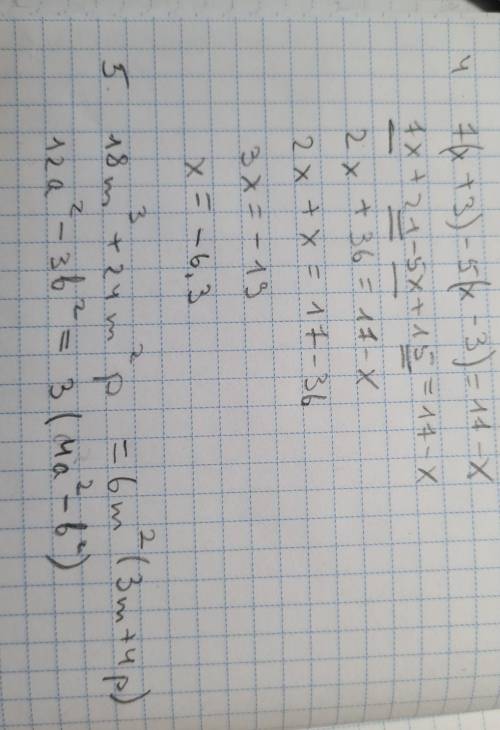 4 7(x+3)-5(x-3)=17-x
7x+21-5x+15=17-x
2x+36=17-x
2x+x=17-36
3x=-19
x=-6,3
5. 18m³+24m²p=6m²(3m+4p)
12a²-3b²=3(4a²-b²)